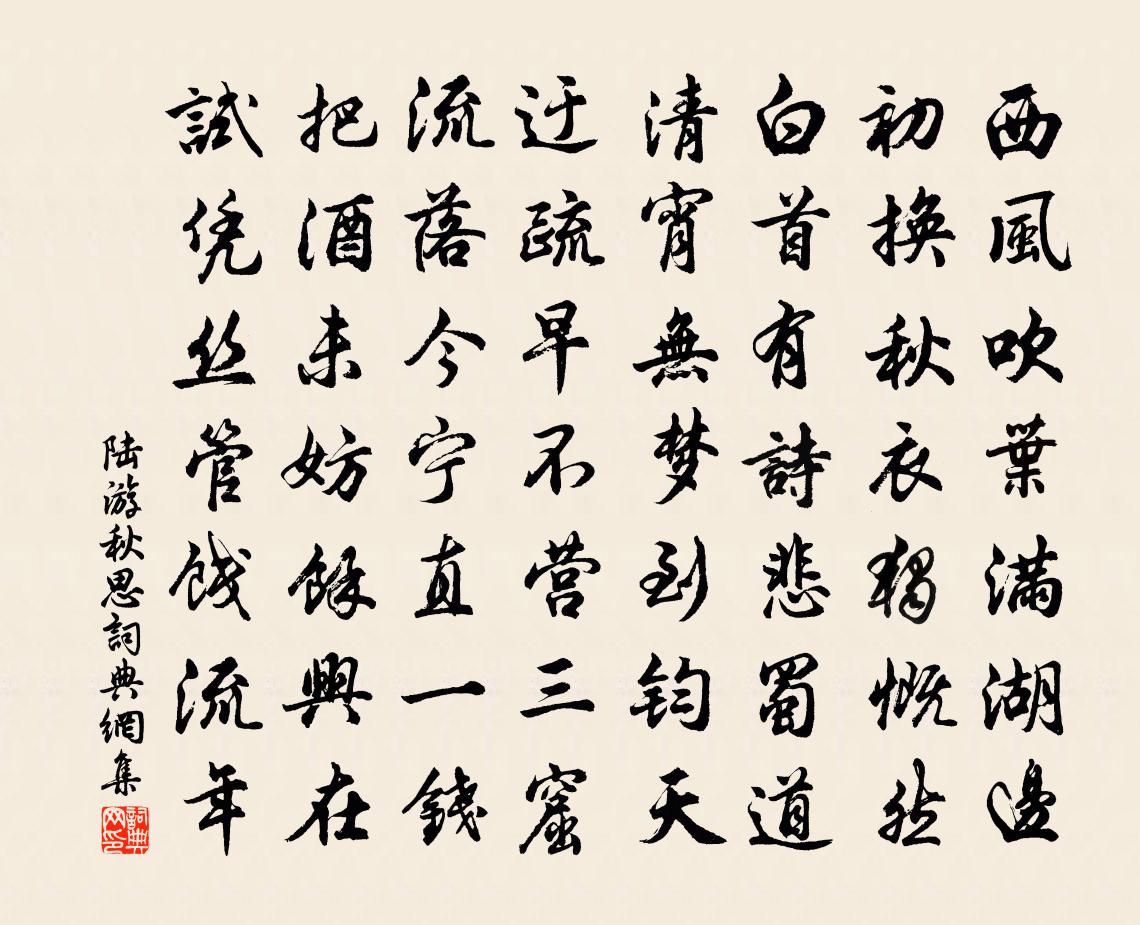 西風吹葉滿湖邊
初換秋衣獨慨然
白首有詩悲蜀道
清宵無梦到鈞天
迂疏早不营三窟
流落今宁直一錢
把酒未妨餘興在
試凭丝管餞流年
陆游秋思詞典網集
詞典網印